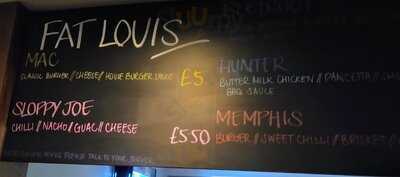 FAT LOUIS
MAC
CLASSIC BURGER // CHEESE // HOUSE BURGER SAUCE £5
SLOPPY JOE
CHILLI // NACHO // GUAC // CHEESE £5.50
HUNTER
BUTTER MILK CHICKEN // PANCETTA //
BBQ SAUCE
MEMPHIS
BURGER // SWEET CHILLI // BRISKET //
PLEASE TALK TO YOUR SERVER